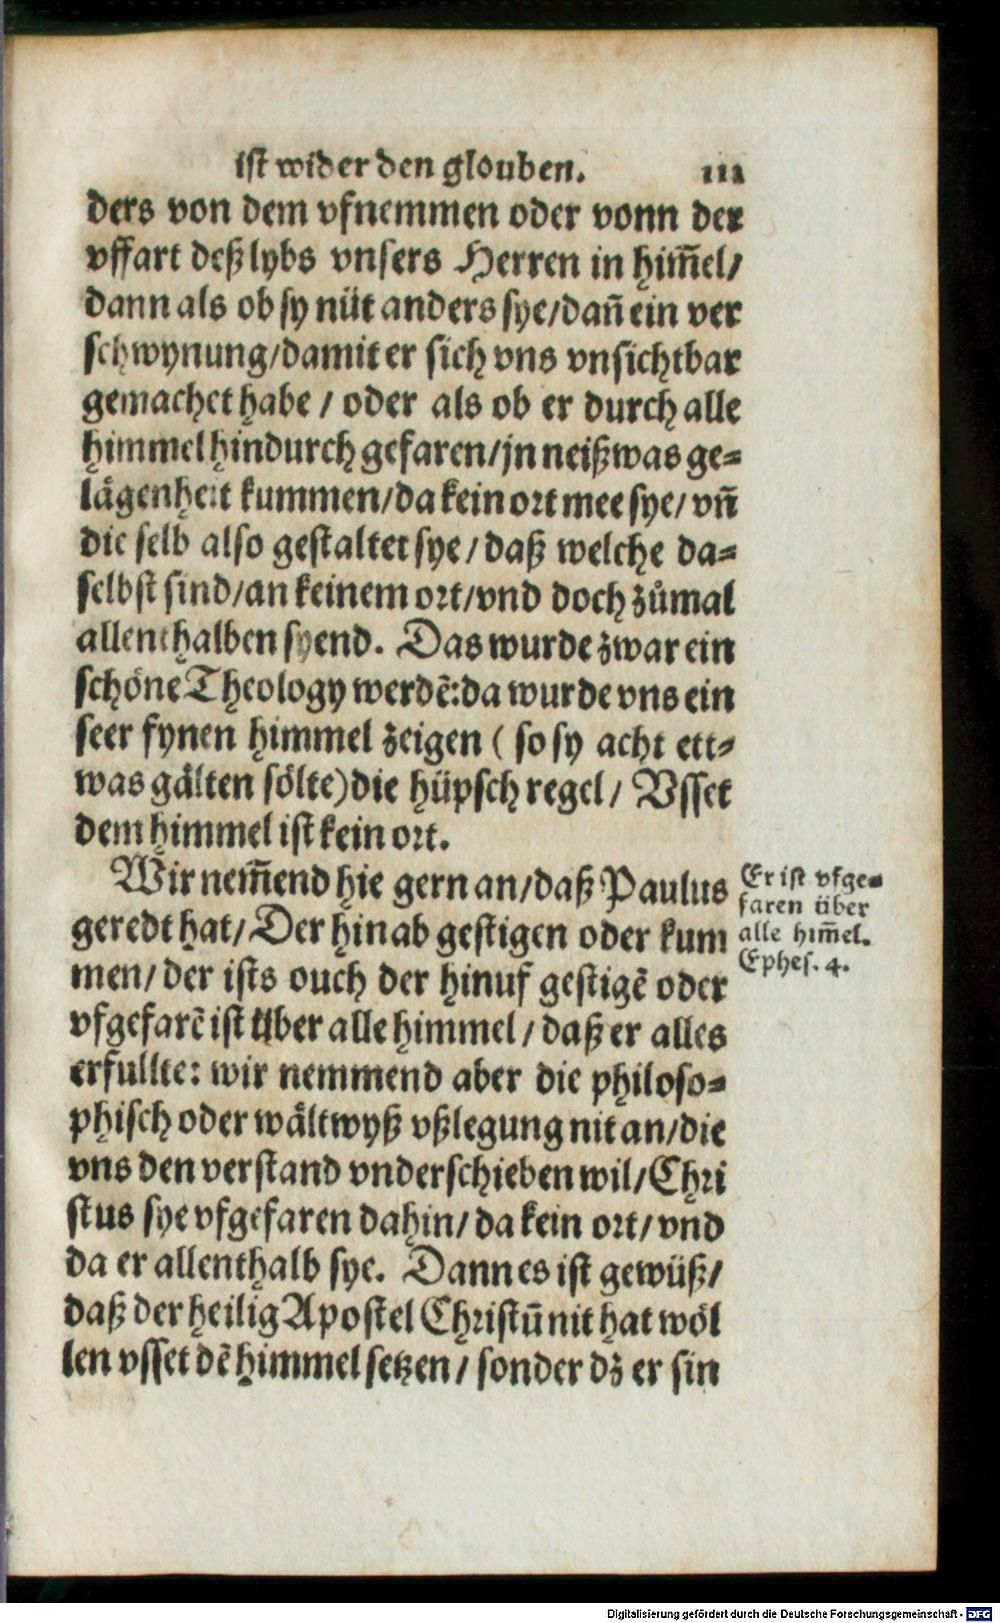 ist wider den glouben. 111
ders von dem vfnemmen oder vonn der
vffart deß lybs vnsers Herren in him̃el/
dann als ob sy nüt anders sye/dañ ein ver
schwynung/damit er sich vns vnsichtbar
gemachet habe / oder als ob er durch alle
himmel hindurch gefaren/jn neißwas ge⸗
lägenheit kummen/da kein ort mee sye/ vñ
die selb also gestaltet sye / daß welche da⸗
selbst sind/an keinem ort/vnd doch zůmal
allenthalben syend. Das wurde zwar ein
schöne Theology werdẽ: da wurde vns ein
seer fynen himmel zeigen ( so sy acht ett⸗
was gälten sölte) die hüpsch regel / Vsset
dem himmel ist kein ort.
Wir nem̃end hie gern an/daß Paulus
geredt hat/ Der hinab gestigen oder kum
men/ der ists ouch der hinuf gestigẽ oder
vfgefarẽ ist über alle himmel / daß er alles
erfullte: wir nemmend aber die philoso⸗
phisch oder wältwyß vßlegung nit an/die
vns den verstand vnderschieben wil/Chri
stus sye vfgefaren dahin/ da kein ort/ vnd
da er allenthalb sye. Dann es ist gewüß/
daß der heilig Apostel Christũ nit hat wöl
len vsset dẽ himmel setzen / sonder dz er sin
Er ist vfge⸗
faren über
alle him̃el.
Ephes. 4.
Digitalisierung gefördert durch die Deutsche Forschungsgemeinschaft - DFG